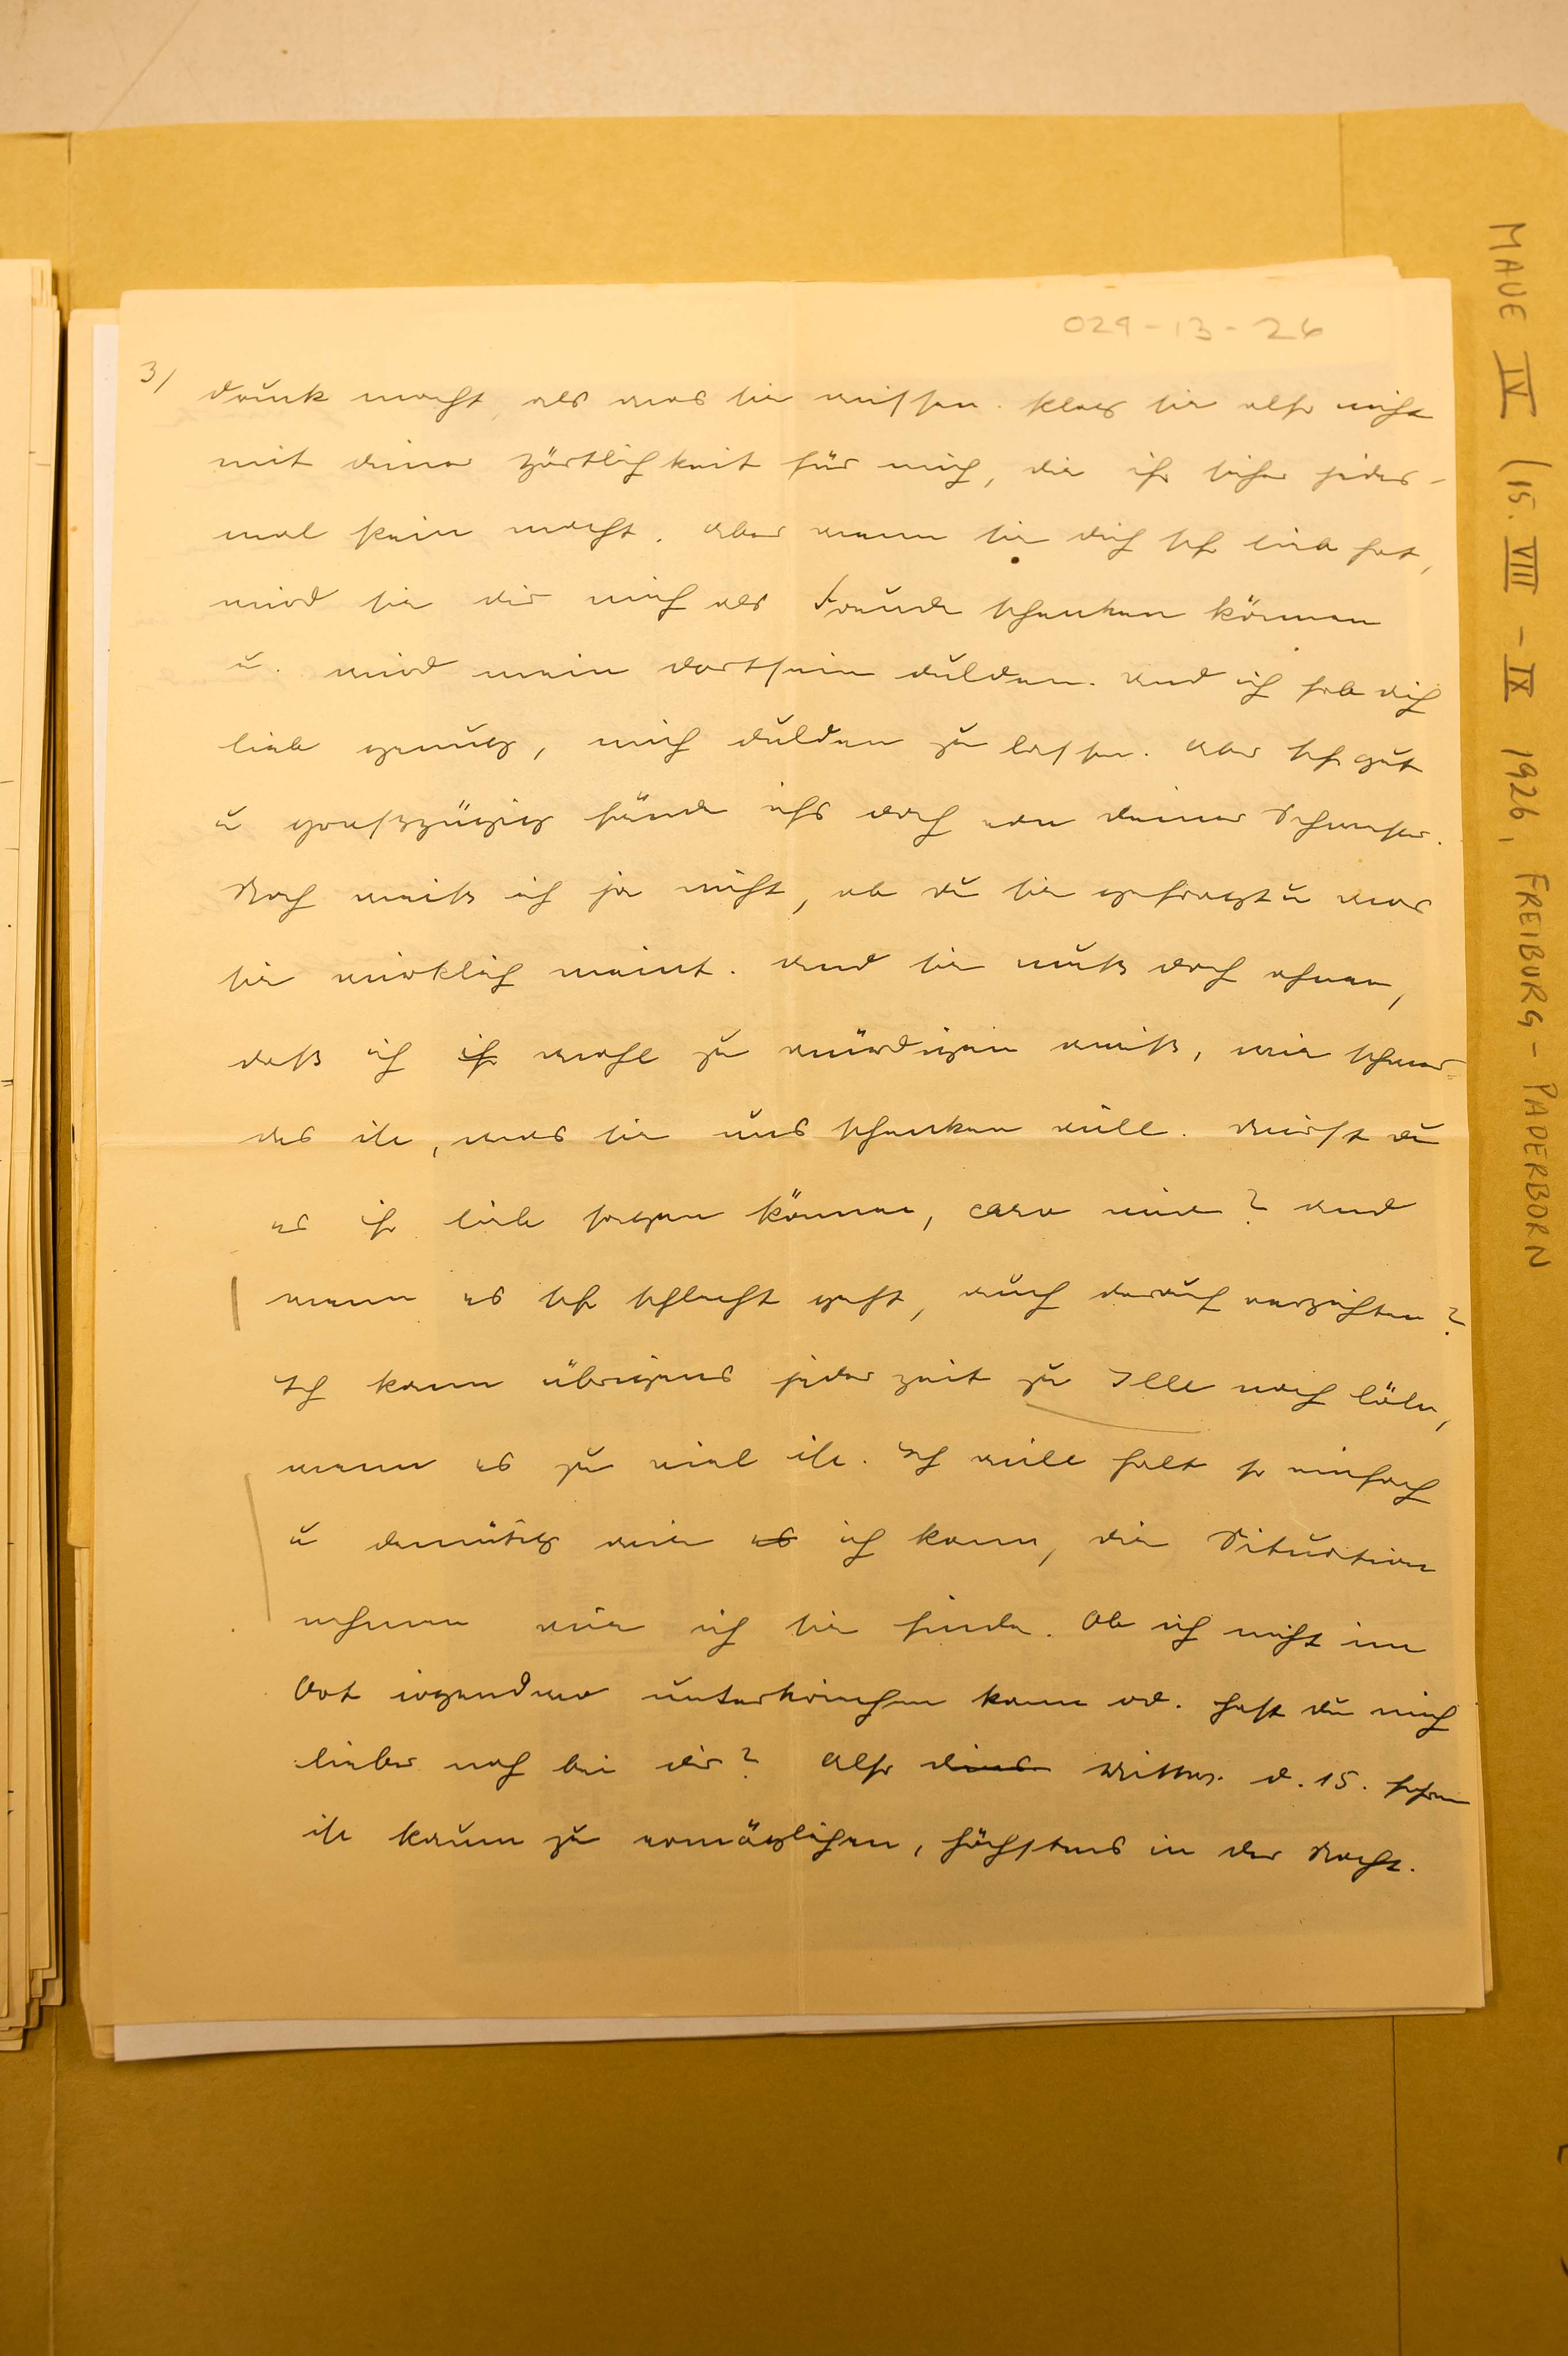 029-13-26
3/
druck macht, als was sie wissen. Klag sie also nicht
mit deiner Zärtlichkeit für mich, die ihr sicher jedes-
mal Pein macht. Aber wenn sie dich sehr lieb hat,
wird sie dir mich als Freude schenken können
u. wird mein Dortsein dulden. Und ich hab dich
lieb genug, mich dulden zu lassen. Aber sehr gut
u großzügig fände ichs doch von deiner Schwester.
Noch weiß ich ja nicht, ob du sie gefragt u was
sie wirklich meint. Und sie muß doch ahnen,
daß ich ih wohl zu würdigen weiß, wie schwer
das ist, was sie uns schenken will. Wirst du
es ihr lieb sagen können, caro mio? Und
wenn es sehr schlecht geht, auch darauf verzichten?
Ich kann übrigens jederzeit zu Ille nach Köln,
wenn es zu viel ist. Ich will halt so einfach
u demütig wie es ich kann, die Situation
nehmen wie ich sie finde. Ob ich nicht im
Ort irgendwo unterkriechen kann od. hast du mich
lieber nah bei dir? Also Mittw. d. 15. sehen
ist kaum zu ermöglichen, höchstens in der Nacht.
MAUE IV (15. VIII - IX 1926, FREIBURG - PADERBORN